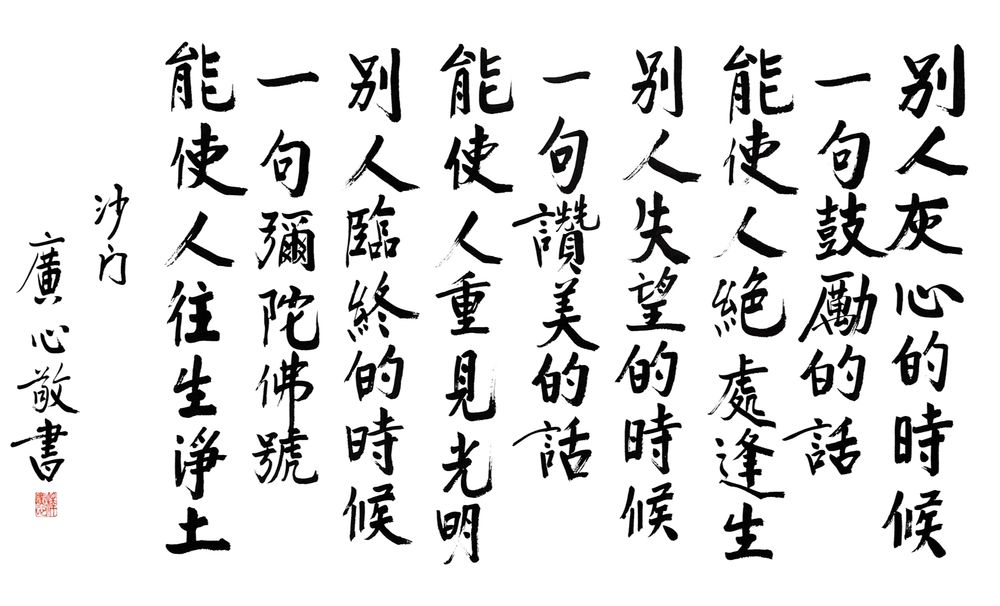 别人灰心的時候
一句鼓勵的話
能使人絕處逢生
别人失望的時候
一句讚美的話
能使人重見光明
别人臨終的時候
一句彌陀佛號
能使人往生淨土
沙门
廣心敬書